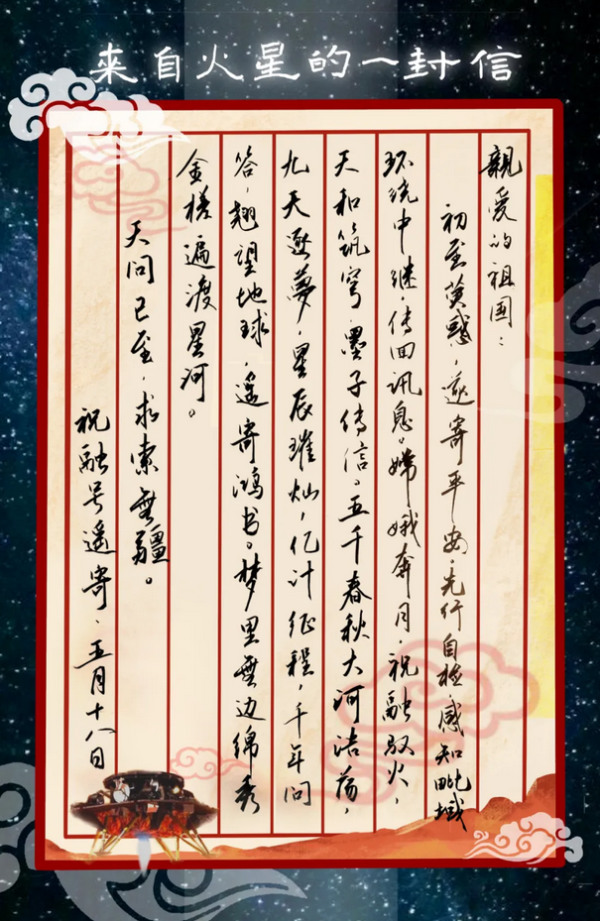 来自火星的一封信
親爱的祖国：
初至荧惑，遥寄平安。先行自检，感知毗域
环绕中继，传回讯息。嫦娥奔月，祝融驭火，
天和筑穹，墨子传信。五千春秋大河浩荡，
九天逐夢，星辰璀灿，亿计征程，千年问
答，翘望地球，遥寄鸿书。梦里無边绵秀
金槎遍渡星河。
天问已至，求索無疆。
祝融号遥寄．五月十八日